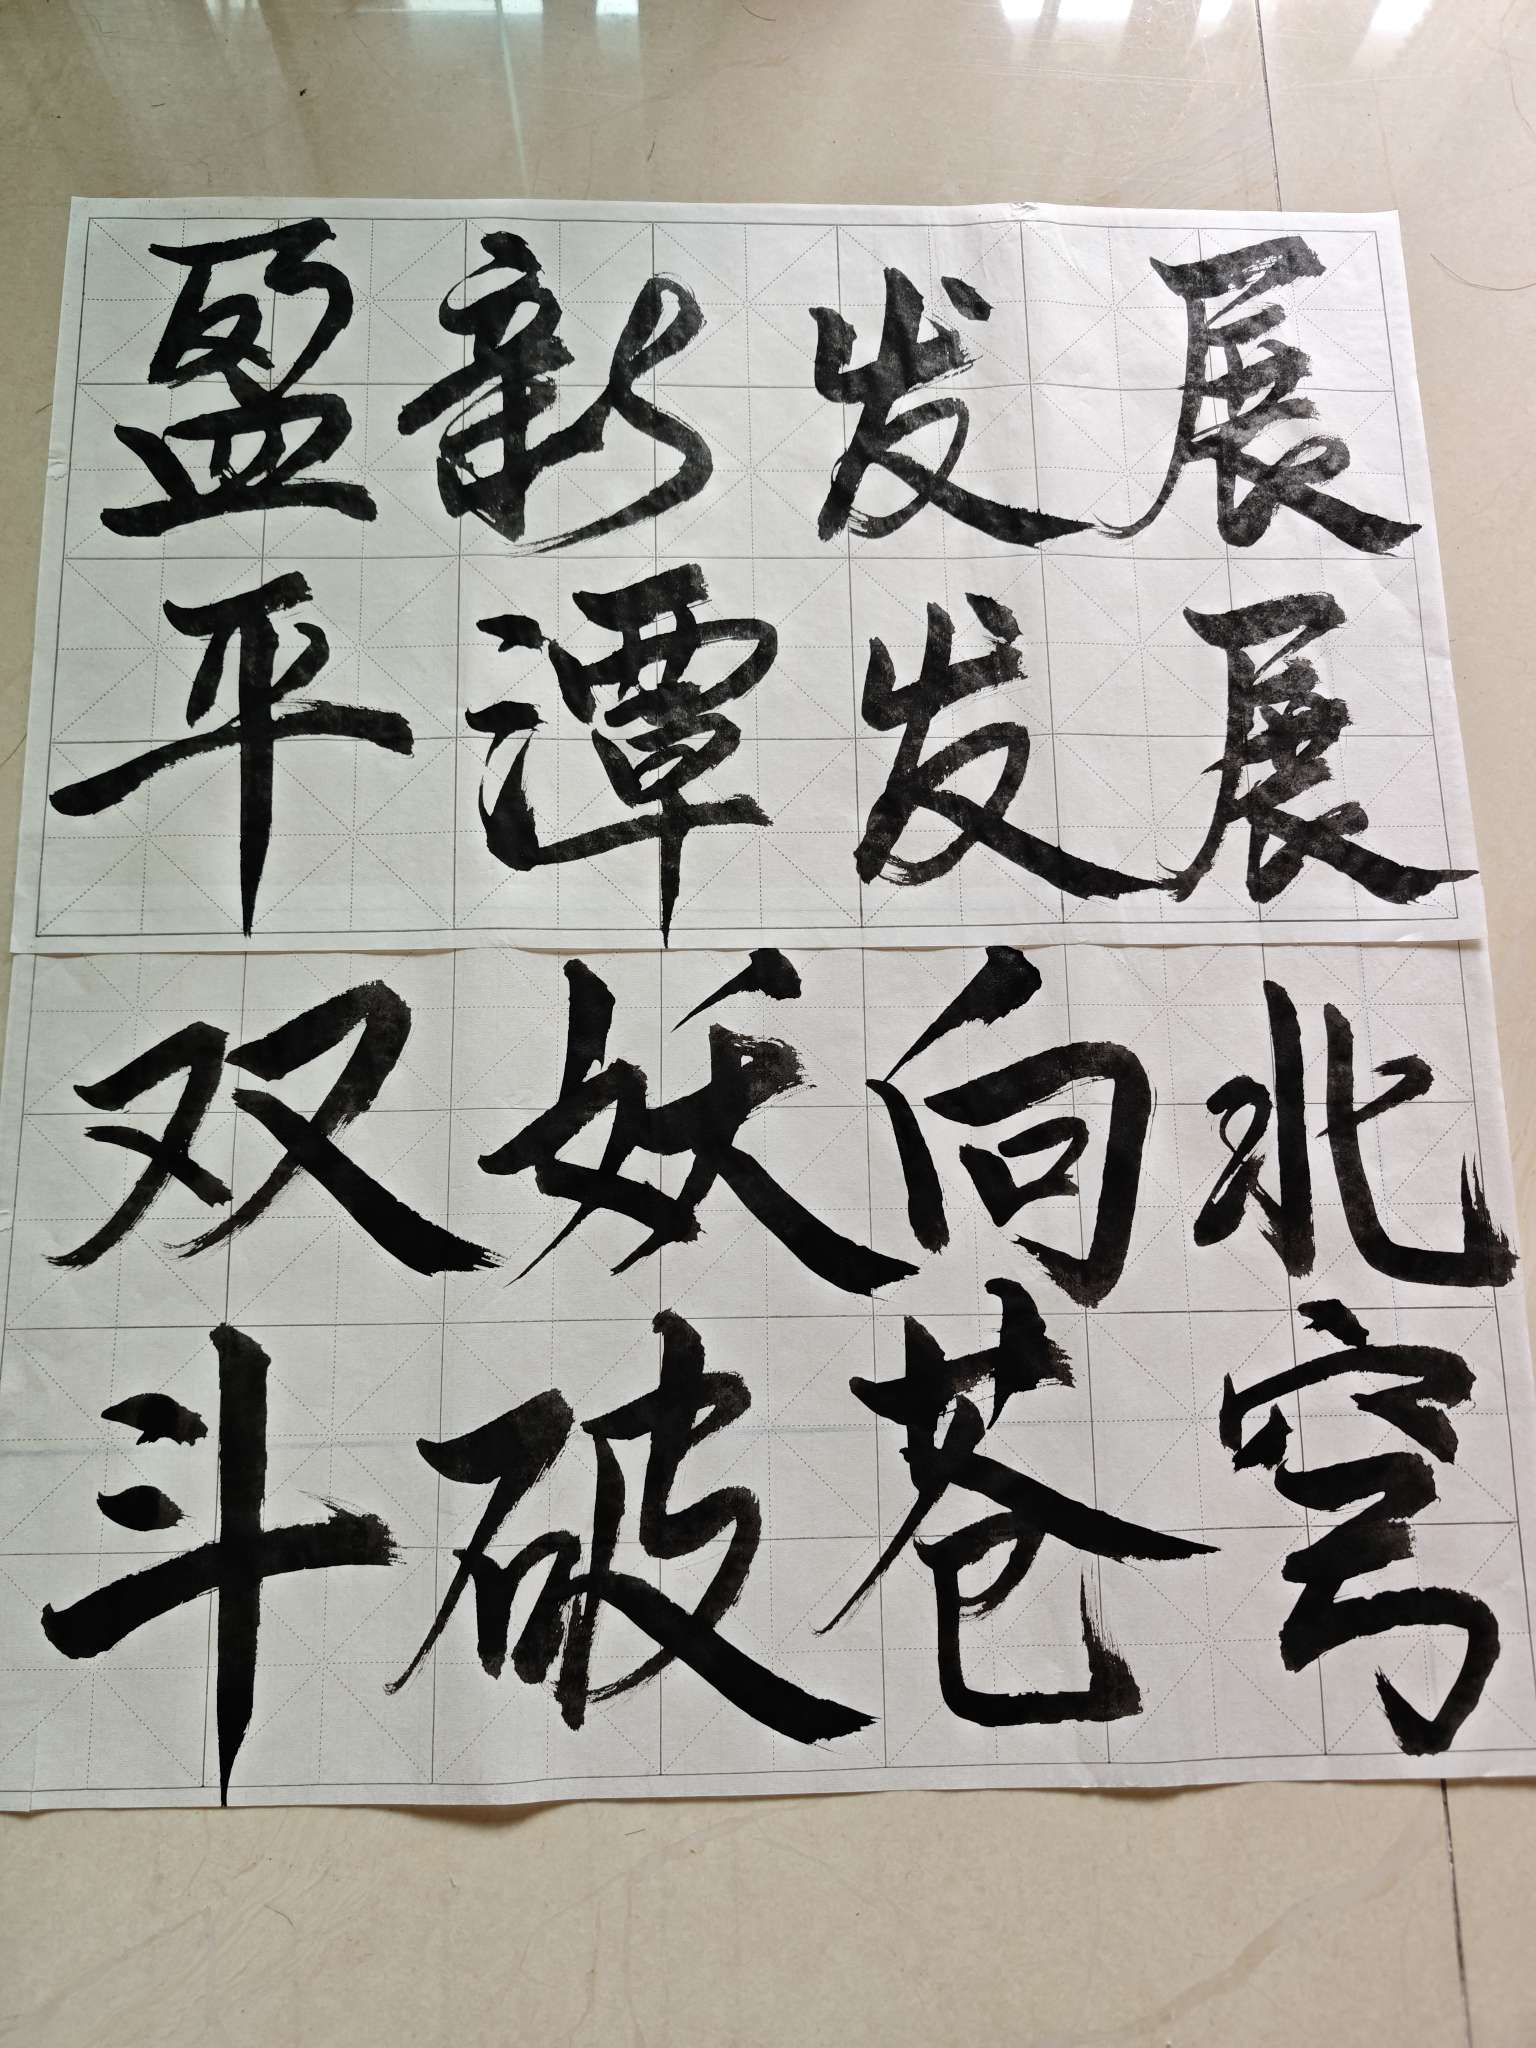 盈新发展
平潭发展
双妖向北
斗破苍穹